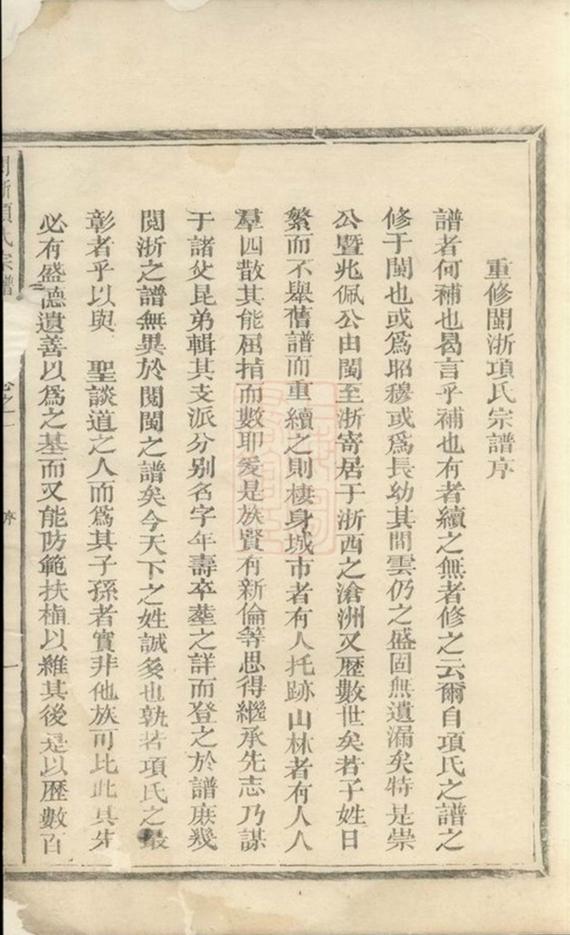 重修閩浙項氏宗譜序
譜者何補也曷言乎補也有者續之無者修之云爾自項氏之譜之
修于閩也或為昭穆或為長幼其間雲仍之盛固無遺漏矣特是崇
公暨兆佩公由閩至浙寄居于浙西之滄洲又歷數世矣若子姓日
繁而不舉舊譜而重續之則棲身城市者有人托跡山林者有人人
羣四散其能屈指而數耶爰是族賢有新倫等思得繼承先志乃謀
于諸父昆弟輯其支派分別名字年壽卒塟之詳而登之於譜庶幾
閱浙之譜無異於閱閩之譜矣今天下之姓誠多也孰若項氏之最
彰者乎以與 聖談道之人而為其子孫者實非他族可比此其先
必有盛德遺善以為之基而又能防範扶植以維其後是以歷數百
浙項氏宗譜 序 一